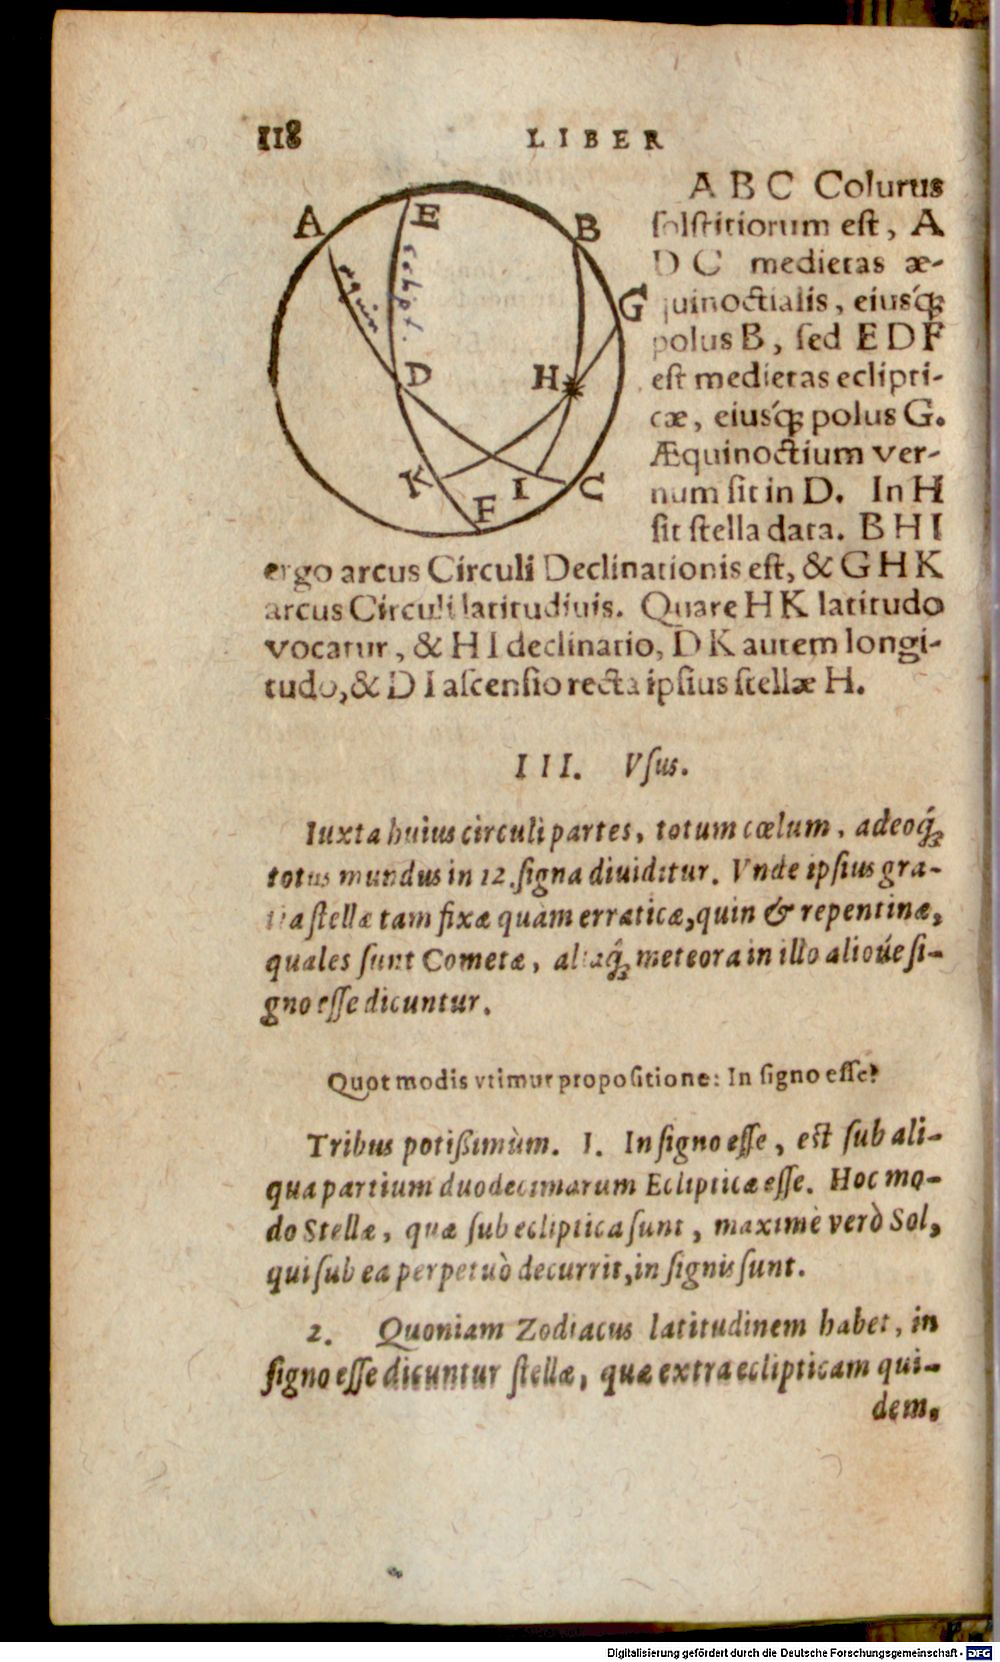 118 LIBER
A E B G D H K I F C
æquin eclipt.
A B C Colurus
solstitiorum est, A
D C medietas æ-
quinoctialis, eiusq́;
polus B, sed E D F
est medietas eclipti-
cæ, eiusq́; polus G.
Æquinoctium ver-
num sit in D. In H
sit stella data. B H I
ergo arcus Circuli Declinationis est, & G H K
arcus Circuli latitudinis. Quare H K latitudo
vocatur, & H I declinatio, D K autem longi-
tudo, & D I ascensio recta ipsius stellæ H.
III. Vsus.
Iuxta huius circuli partes, totum cœlum, adeoq́;
totus mundus in 12. signa diuiditur. Vnde ipsius gra-
tia stellæ tam fixæ quàm erraticæ, quin & repentinæ,
quales sunt Cometæ, aliaq́; meteora in illo alioúe si-
gno esse dicuntur.
Quot modis vtimur propositione: In signo esse?
Tribus potißimùm. 1. In signo esse, est sub ali-
qua partium duodecimarum Eclipticæ esse. Hoc mo-
do Stellæ, quæ sub ecliptica sunt, maximè verò Sol,
qui sub ea perpetuò decurrit, in signis sunt.
2. Quoniam Zodiacus latitudinem habet, in
signo esse dicuntur stellæ, quæ extra eclipticam qui-
dem,
Digitalisierung gefördert durch die Deutsche Forschungsgemeinschaft - DFG